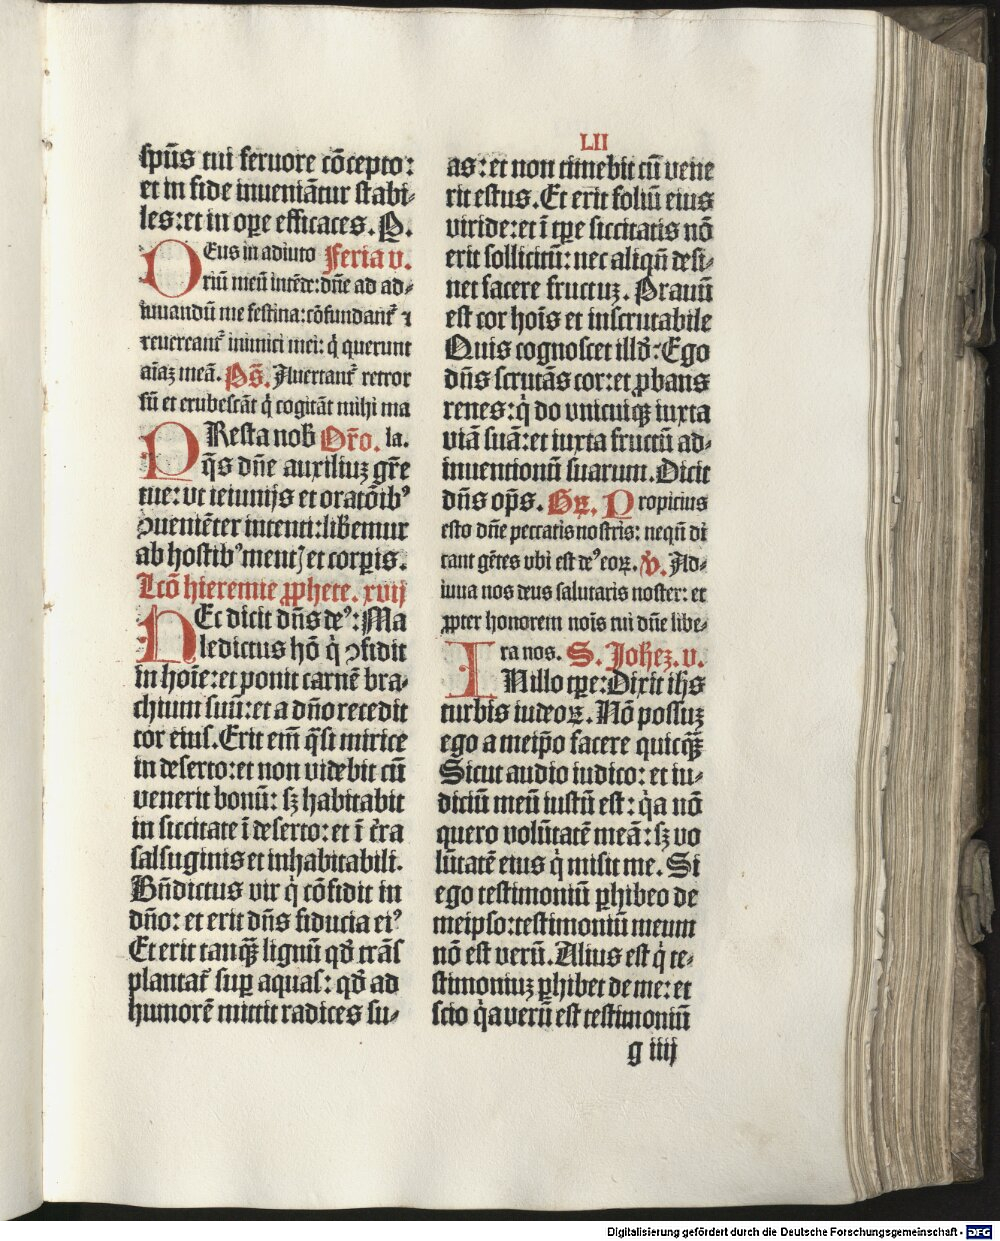 LII
spūs tui feruore cōcepto:
et in fide inueniātur stabi-
les: et in ope efficaces. P.
DEus in adiuto Feria v.
riū meū intēde: dñe ad ad-
iuuandū me festina: cōfundant᷑ ⁊
reuereant᷑ inimici mei: q̇ querunt
aīaz meā. Ps̄. Auertant᷑ retror
sū et erubescāt q̇ cogitāt mihi ma
PResta nob̄ Or̄o. la.
q̄s dñe auxiliuz gr̄e
tue: vt ieiunijs et oratōib⁹
ꝯueniēter intenti: liberemur
ab hostib⁹ mentꝭ et corpis.
Lcō hieremie ꝓphete. xvij
HEc dicit dn̄s de⁹: Ma
ledictus hō q̇ ꝯfidit
in hoīe: et ponit carnē bra-
chium suū: et a dn̄o recedit
cor eius. Erit em̄ q̄si mirice
in deserto: et non videbit cū
venerit bonū: sꝫ habitabit
in siccitate ī deserto: et ī t̄ra
salsuginis et inhabitabili.
Bn̄dictus vir q̇ cōfidit in
dn̄o: et erit dn̄s fiducia ei⁹
Et erit tanqꝫ̄ lignū qd̄ trās
plantat᷑ suꝑ aquas: qd̄ ad
humorē mittit radices su-
as: et non timebit cū vene
rit estus. Et erit foliū eius
viride: et ī tꝑe siccitatis nō
erit sollicitū: nec aliqn̄ desi-
net facere fructuꝫ. Prauū
est cor hoīs et inscrutabile
Quis cognoscet illd̄: Ego
dn̄s scrutās cor: et ꝓbans
renes: q̇ do vnicuiqꝫ iuxta
viā suā: et iuxta fructū ad-
inuentionū suarum. Dicit
dn̄s op̄s. Gꝝ. Propicius
esto dñe peccatis nostris: neqn̄ di
cant gētes vbi est de⁹ eoꝝ. v̇. Ad-
iuua nos deus salutaris noster: et
ꝓpter honorem noīs tui dñe libe-
ra nos. S. Joheꝫ. v.
IN illo tꝑe: Dixit ih̄s
turbis iudeoꝝ. Nō possuꝫ
ego a meip̄o facere quicqꝫ̄
Sicut audio iudico: et iu-
diciū meū iustū est: q̇a nō
quero volūtatē meā: sꝫ vo
lūtatē eius q̇ misit me. Si
ego testimoniū ꝑhibeo de
meipso: testimoniū meum
nō est verū. Alius est q̇ te-
stimoniuꝫ ꝑhibet de me: et
scio q̇a verū est testimoniū
g iiij
Digitalisierung gefördert durch die Deutsche Forschungsgemeinschaft - DFG